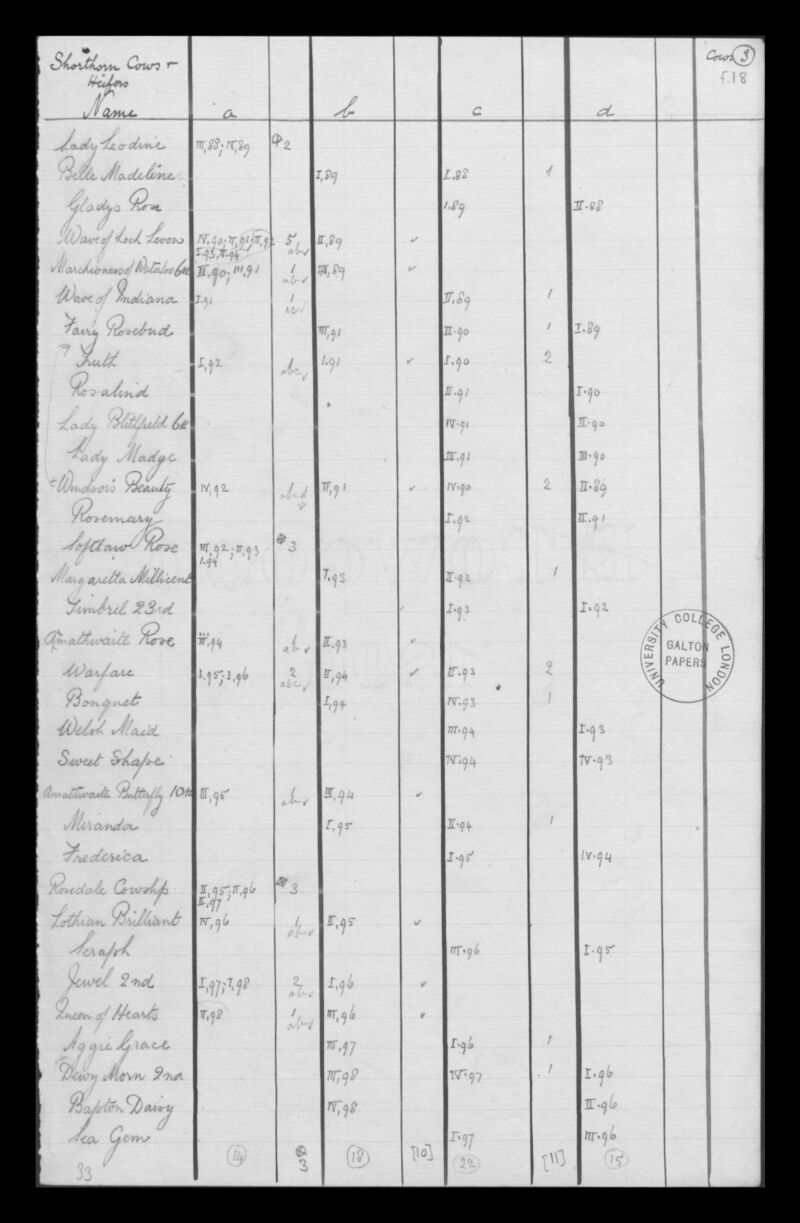 Shorthorn Cows +
Heifers
Cows 3
f.18
Name a b c d
Lady Leodine III,88; IV,89 2
Belle Madeline I,89 I.88 1
Gladys Rose 1.89 II.88
Wave of Loch Leven IV.90; II,91; II,92 5 II,89 ✓
I.93, II.94 abv
Marchioness of Waterloo 6th II.90; III.91 1 III,89 ✓
abv
Wave of Indiana I.91 1 II,89 1
Fairy Rosebud III,91 II.90 1 I.89
Truth I,92 1.91 ✓ I.90 2
abcv
Rosalind II.91 I.90
Lady Blithfield 6th IV.91 II.90
Lady Madge III,91 III.90
Windsor's Beauty IV,92 1 II,91 ✓ IV.90 2 II.89
abcd
Rosemary I.92 II.91
Softlaw Rose III,92; II,93 3
I.94
Margaretta Millicent I.93 II.92 1
Timbrel 23rd I.93 I.92
Amathwaite Rose III,94 1 II,93 ✓
abv
Warfare I,95; I,96 2 II,94 ✓ II.93 2
abcv
Bouquet I,94 IV.93 1
Welsh Maid III.94 I.93
Sweet Shape IV.94 IV.93
Amathwaite Butterfly 10th III,95 1 III,94 ✓
abv
Miranda I,95 II.94 1
Frederica I.95 IV.94
Rosedale Cowslip II,95; II,96 3
II,97
Lothian Brilliant IV,96 1 II,95 ✓
abv
Seraph III.96 I.95
Jewel 2nd I,97; I,98 2 I,96 ✓
abv
Queen of Hearts II,98 1 III,96 ✓
abv
Aggie Grace III,97 I.96 1
Dewy Morn 2nd III,98 IV.97 1 I.96
Bapton Daisy IV,98 II.96
Sea Gem I.97 III.96
33 14 3 18 [10] 22 [11] 15
UNIVERSITY COLLEGE LONDON
GALTON
PAPERS